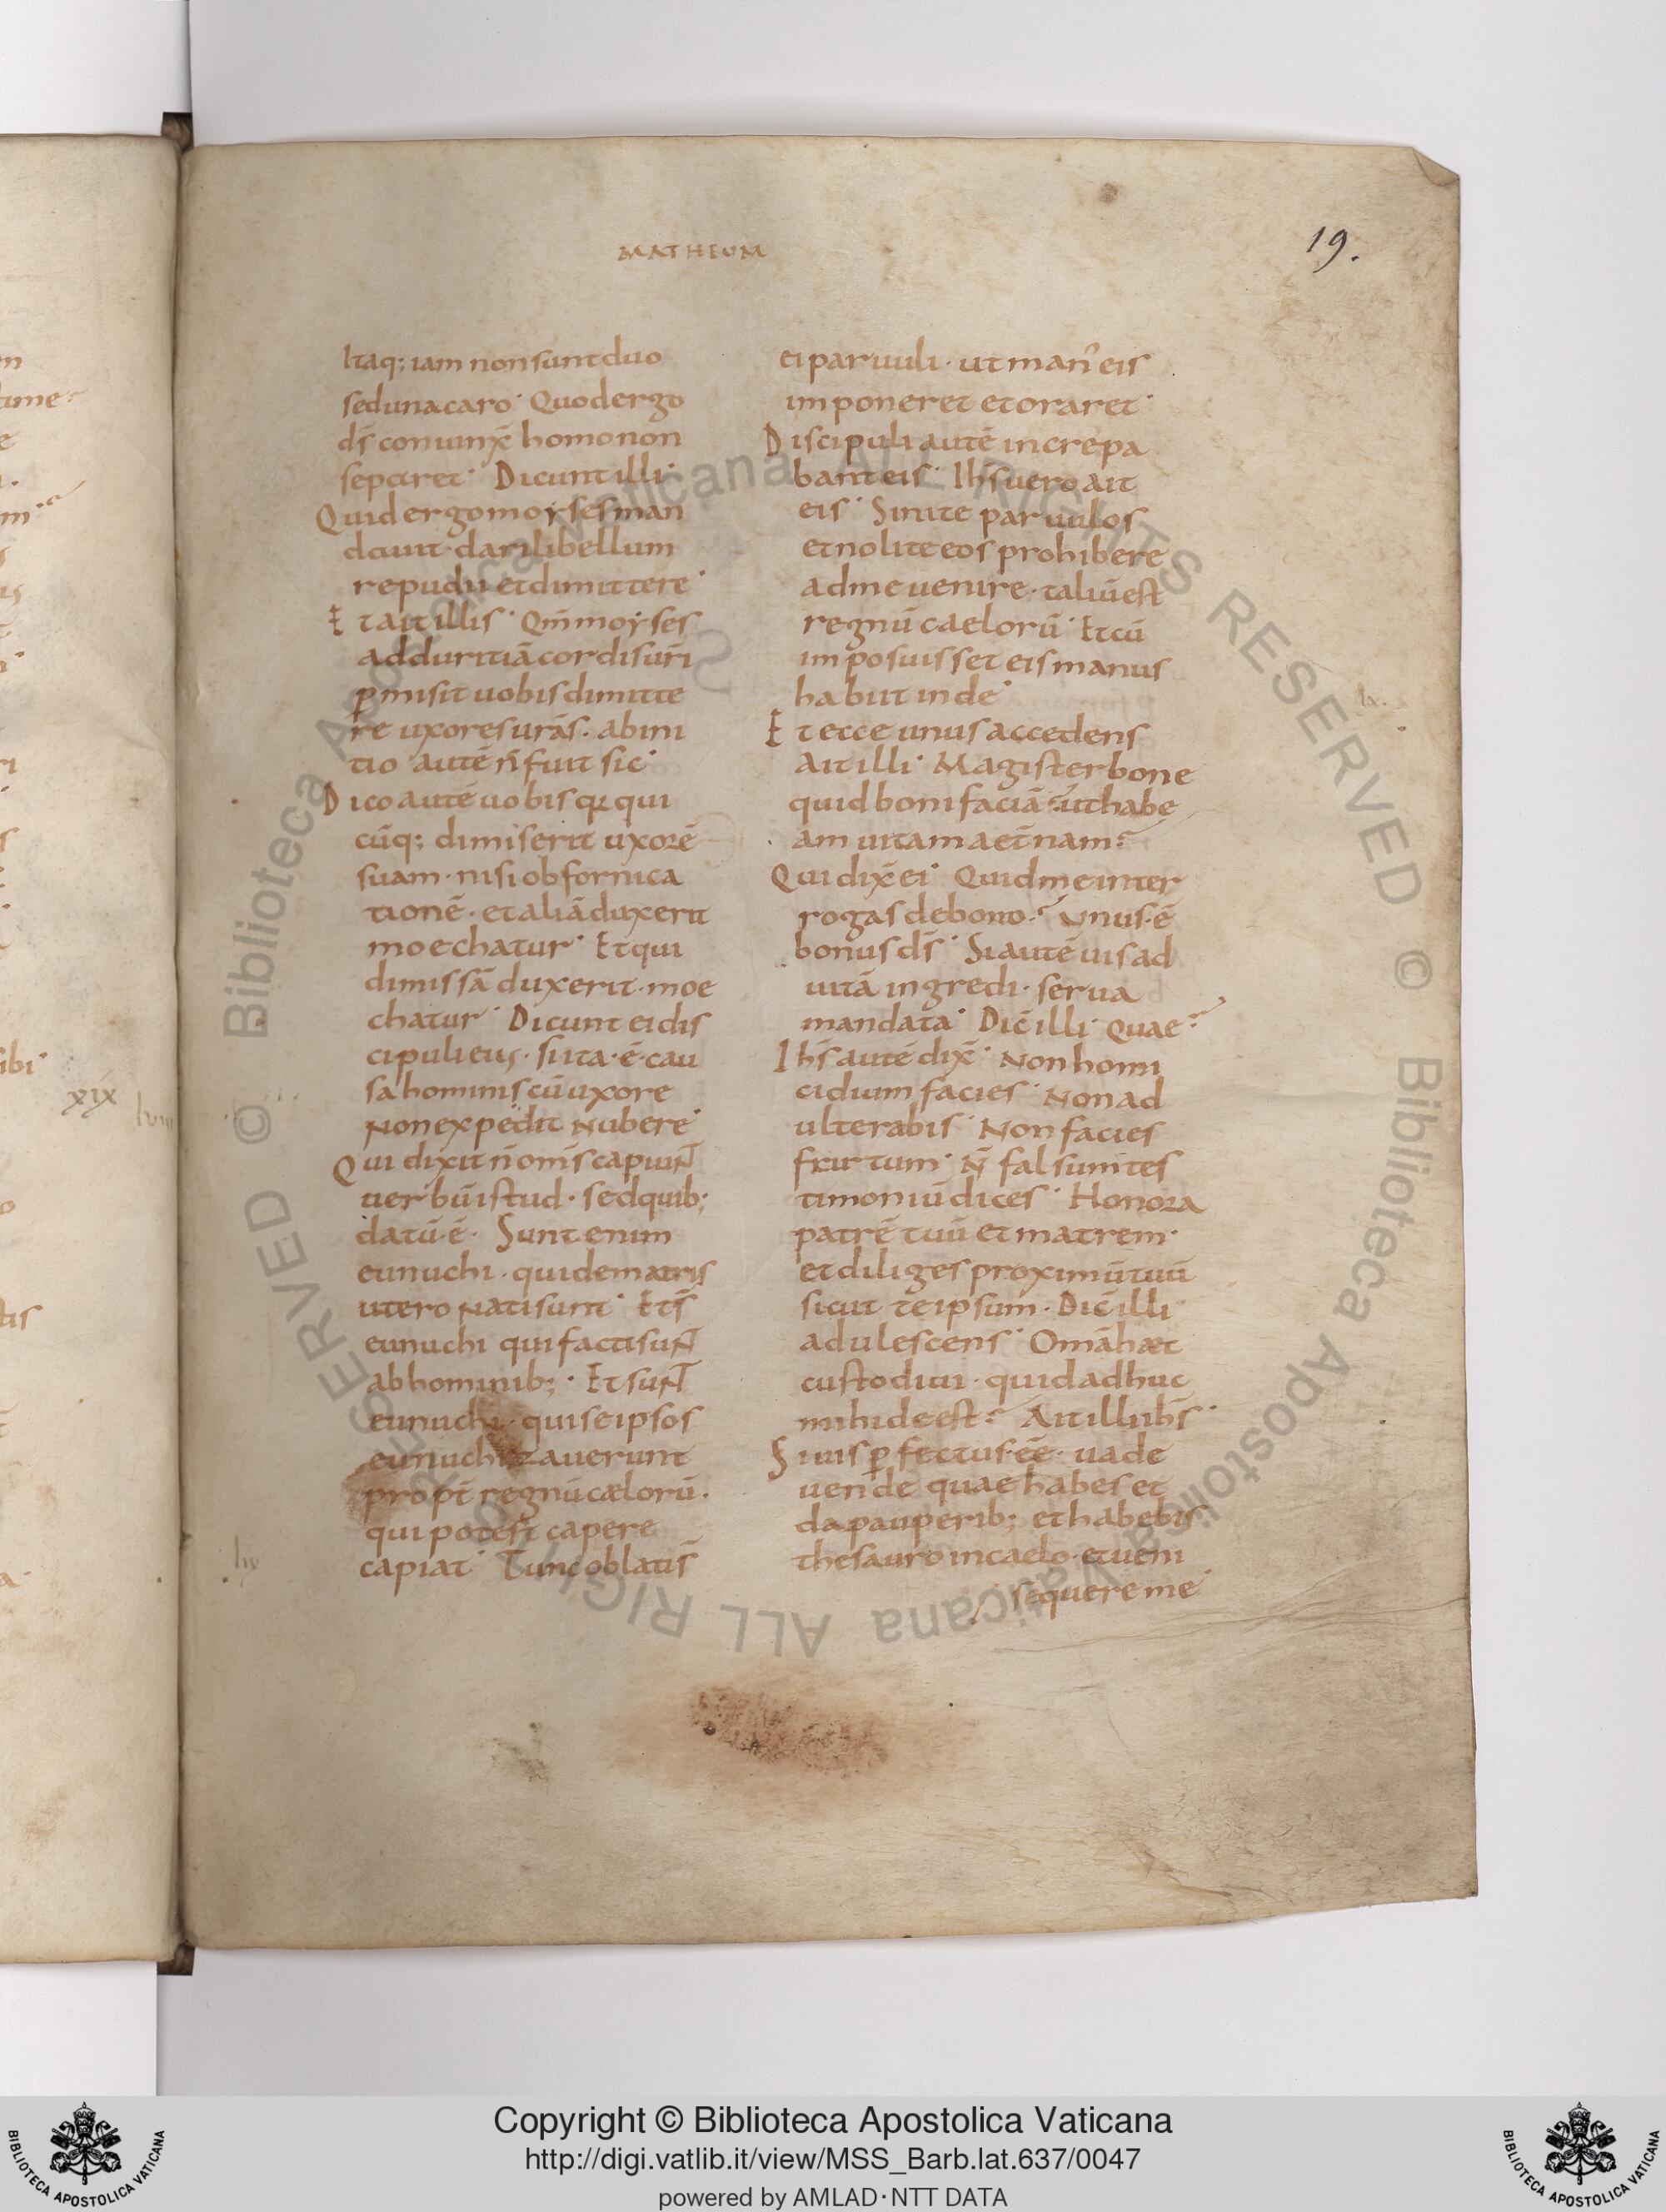 MATHEUM
19.
Itaq; iam non sunt duo
sed una caro· Quod ergo
dś coniunx̄ homo non
separet· Dicunt illi·
Quid ergo moyses man
dauit· dari libellum
repudii et dimittere·
Et ait illis· Qm̄ moyses
ad duritiā cordis ur̄i
ꝑmisit uobis dimitte
re uxores ur̄as· ab ini
tio autē n̄ fuit sic·
Dico autē uobis qꝛ qui
cūq; dimiserit uxorē
suam· nisi ob fornica
tionē· et aliā duxerit
moechatur· Et qui
dimissā duxerit· moe
chatur· Dicunt ei dis
cipuli eius· si ita·ē·cau
sa hominis cū uxore
Non expedit Nubere·
Qui dixit n̄ om̄s capiuNT
uerbū istud· sed quib;
datū·ē· Sunt enim
eunuchi· qui de matris
utero Nati sunt· Et s̄
eunuchi qui facti suNT
ab hominib;· Et suNT
eunuchi· qui se ipsos
eunuchizauerunt
propt̄ regnū cælorū·
qui potest capere
capiat· Tunc oblati s̄
lix
ei paruuli· ut man᾽ eis
imponeret et oraret·
Discipuli autē increpa
bant eis· Ihs̄ uero ait
eis· Sinite paruulos
et nolite eos prohibere
ad me uenire· taliū est
regnū caelorū· Et cū
imposuisset eis manus
habiit inde·
Et ecce unus accedens
lx.
Ait illi· Magister bone
quid boni faciā· ut habe
am uitam aet̄nam?
Qui dix̄ ei· Quid me inter
rogas de bono? Unus·ē
bonus dś· Si autē uis ad
uitā ingredi· serua
mandata· Dic̄ illi· Quae?
Ihs̄ autē dix̄· Non homi
cidium facies· Non ad
ulterabis· Non facies
furtum· N̄ falsum tes
timoniū dices· Honora
patrē tuū et matrem·
et diliges proximū tuū
sicut te ipsum· Dic̄ illi
adulescens· Om̄a hæc
custodiui· quid adhuc
mihi deest? Ait illi ihs̄·
Si uis ꝑfectus·eē· uade
uende quae habes et
da pauperib; et habebis
thesauro in caelo· et ueni
sequere me·
xix
Copyright © Biblioteca Apostolica Vaticana
http://digi.vatlib.it/view/MSS_Barb.lat.637/0047
powered by AMLAD·NTT DATA
BIBLIOTECA APOSTOLICA VATICANA
BIBLIOTECA APOSTOLICA VATICANA
© Biblioteca Apostolica Vaticana ALL RIGHTS RESERVED © Biblioteca Apostolica Vaticana ALL RIGHTS RESERVED